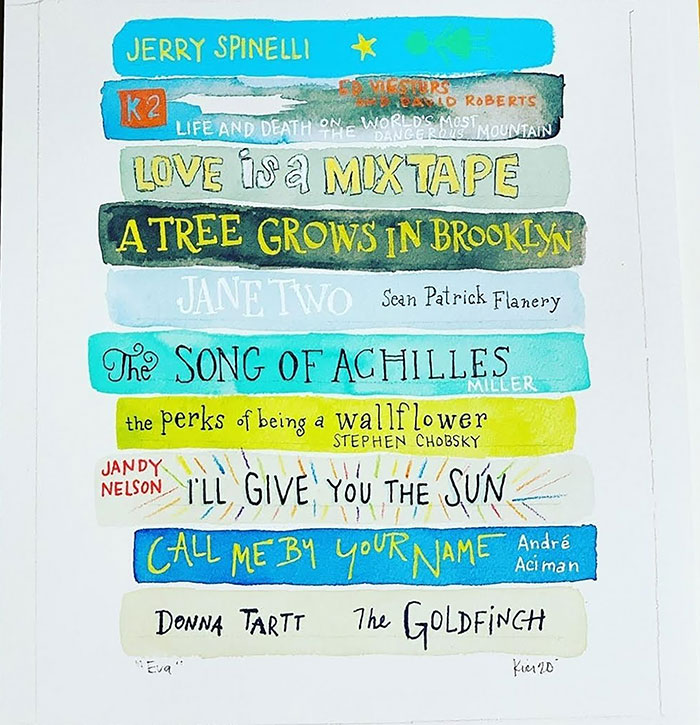 JERRY SPINELLI
K2
ED VIESTURS
AND DAVID ROBERTS
LIFE AND DEATH ON THE WORLD'S MOST
DANGEROUS MOUNTAIN
LOVE is a MIXTAPE
A TREE GROWS IN BROOKLYN
JANE TWO Sean Patrick Flanery
The SONG OF ACHILLES
MILLER
the perks of being a wallflower
STEPHEN CHOBSKY
JANDY
NELSON
I'LL GIVE YOU THE SUN
CALL ME BY YOUR NAME
André
Aciman
DONNA TARTT The GOLDFINCH
"Eva"